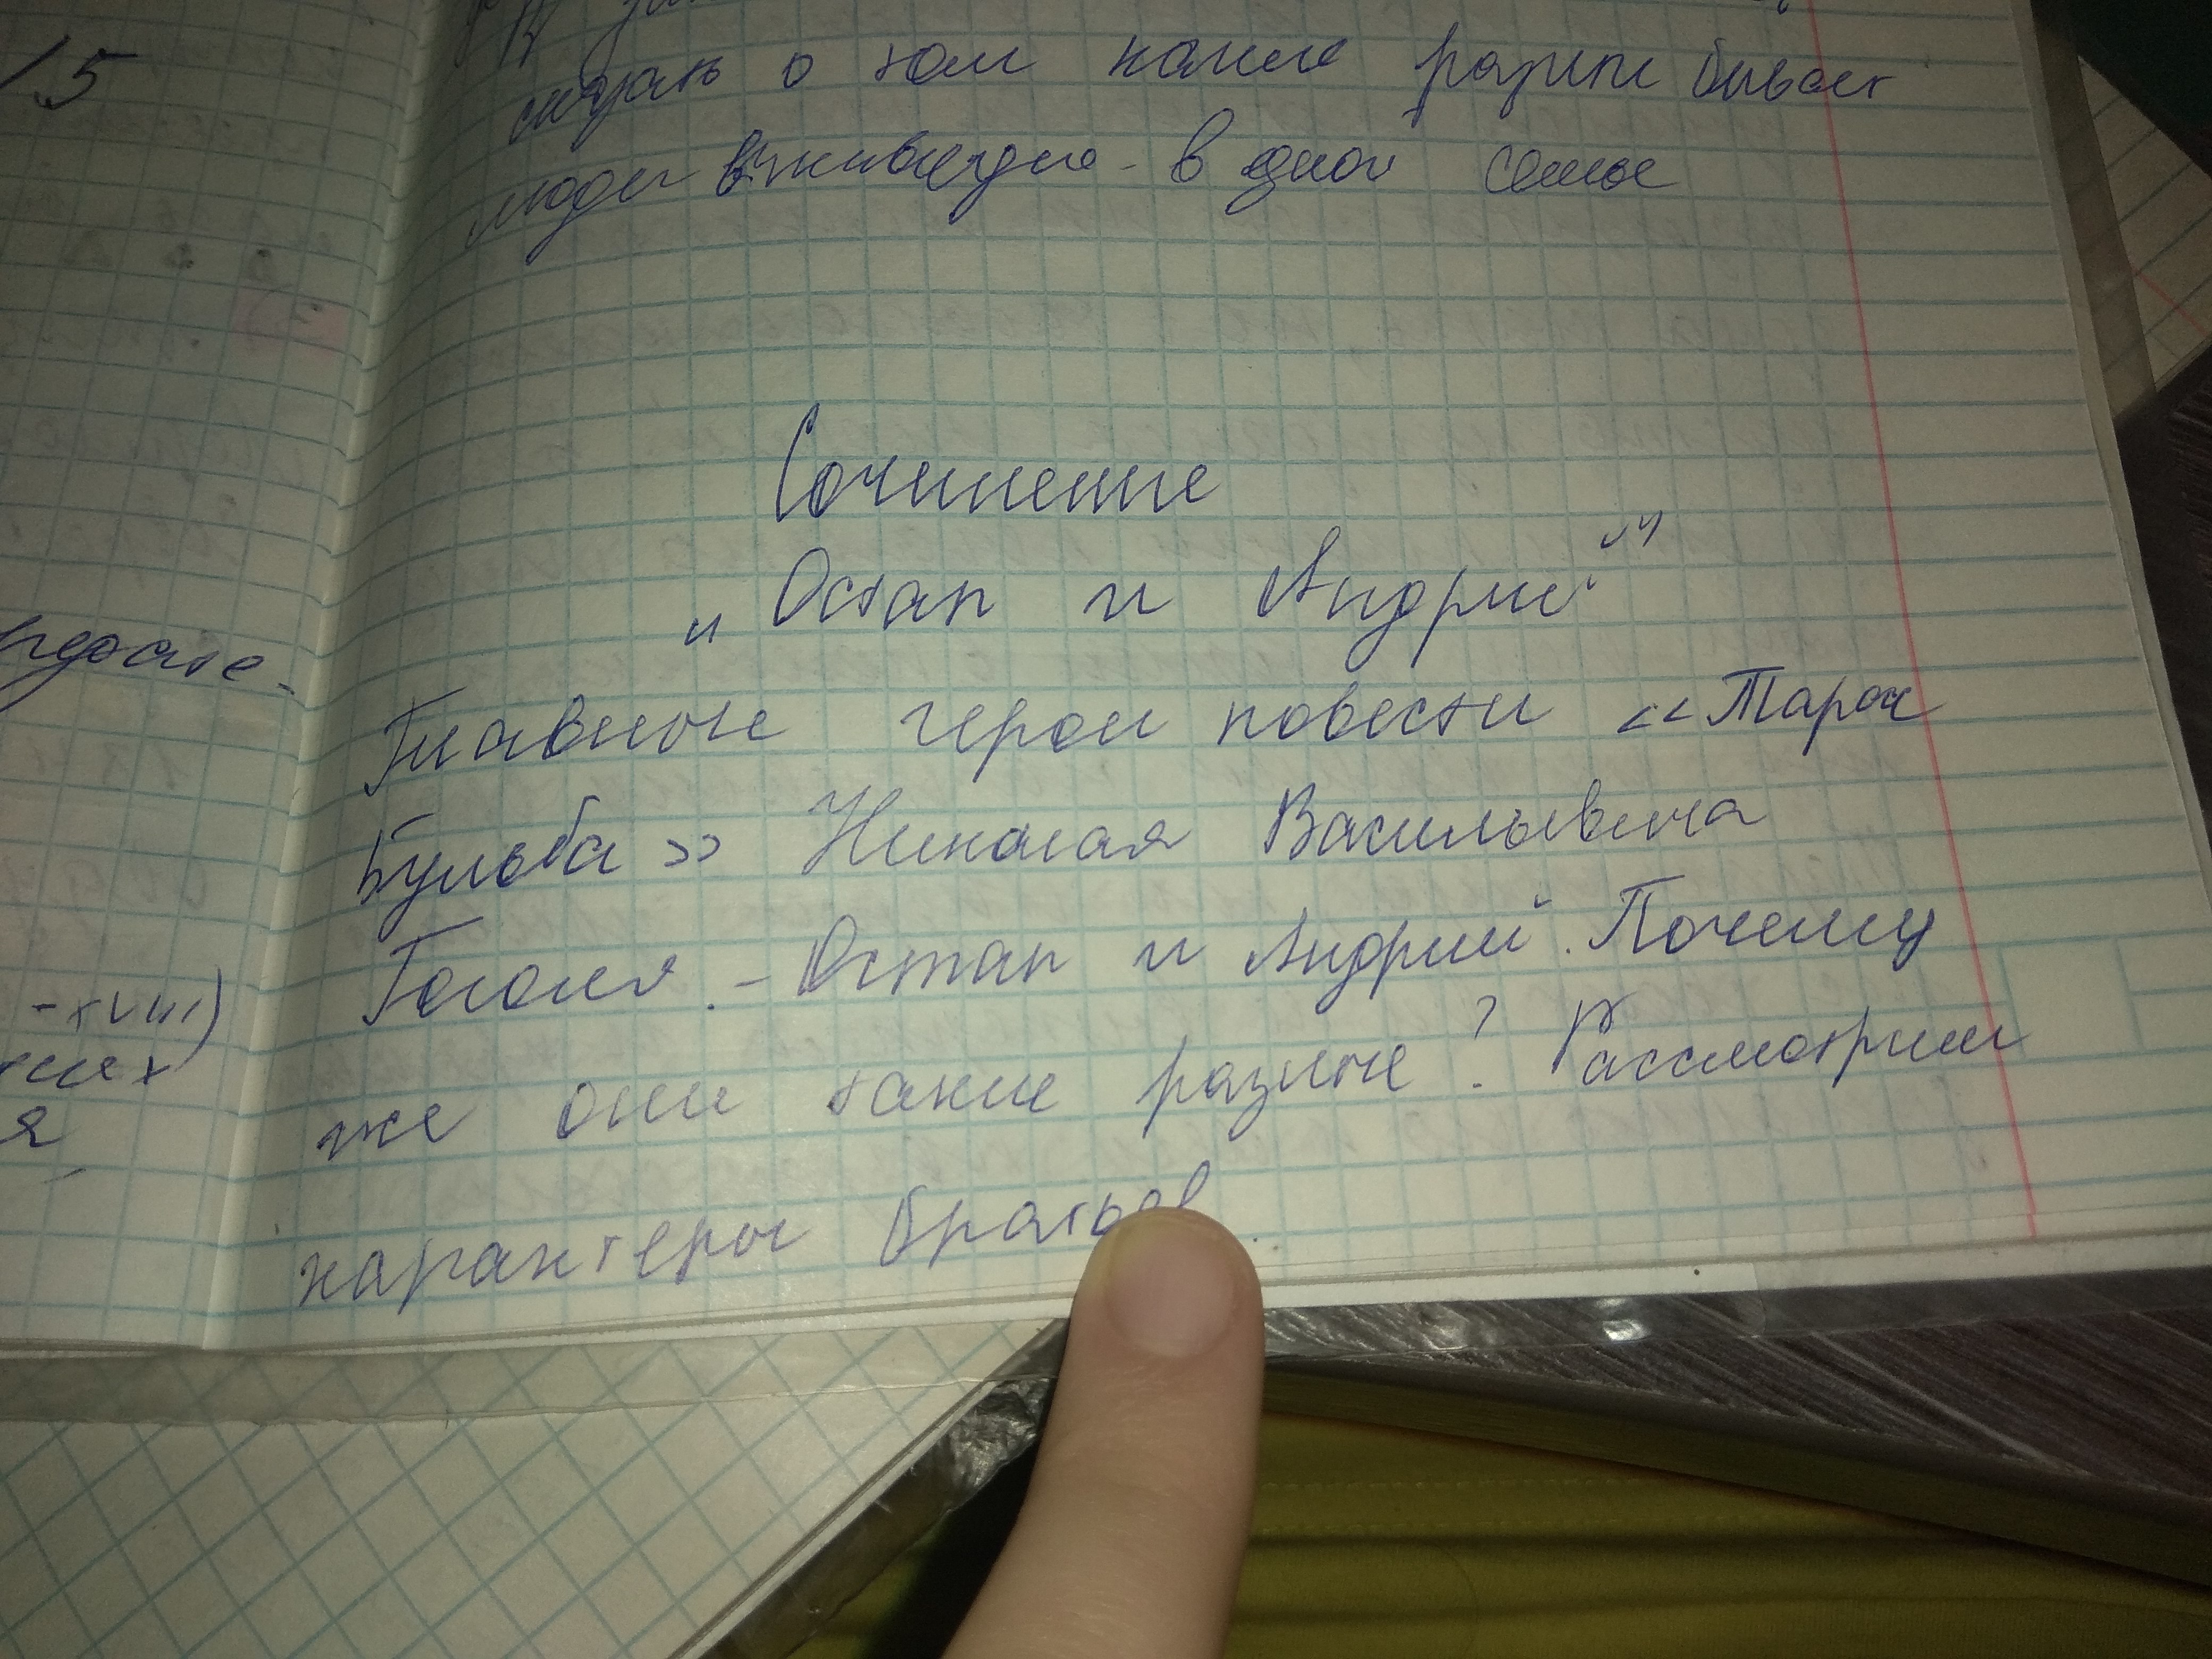 15
сказать о том какие разные бывает
люди в одной семье
Сочинение
„Остап и Андрий"
Главные герои повести «Тарас
Бульба» Николая Васильевича
Гоголя. - Остап и Андрий. Почему
же они такие разные? Рассмотрим
характеры братьев
-XVIII)
я